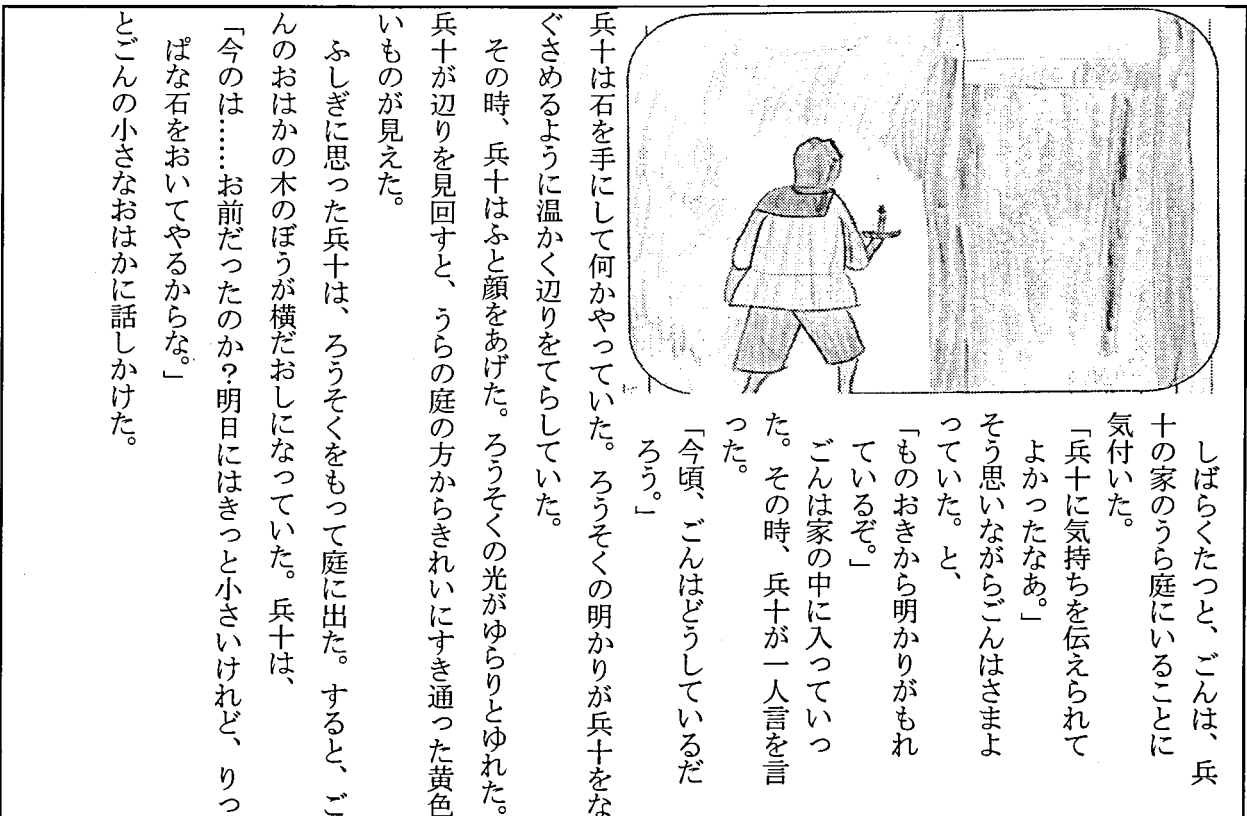 しばらくたつと、ごんは、兵
十の家のうら庭にいることに
気付いた。
「兵十に気持ちを伝えられて
よかったなあ。」
そう思いながらごんはさまよ
っていた。と、
「ものおきから明かりがもれ
ているぞ。」
ごんは家の中に入っていっ
た。その時、兵十が一人言を言
った。
「今頃、ごんはどうしているだ
ろう。」
兵十は石を手にして何かやっていた。ろうそくの明かりが兵十をな
ぐさめるように温かく辺りをてらしていた。
その時、兵十はふと顔をあげた。ろうそくの光がゆらりとゆれた。
兵十が辺りを見回すと、うらの庭の方からきれいにすき通った黄色
いものが見えた。
ふしぎに思った兵十は、ろうそくをもって庭に出た。すると、ご
んのおはかの木のぼうが横だおしになっていた。兵十は、
「今のは……お前だったのか?明日にはきっと小さいけれど、りっ
ぱな石をおいてやるからな。」
とごんの小さなおはかに話しかけた。